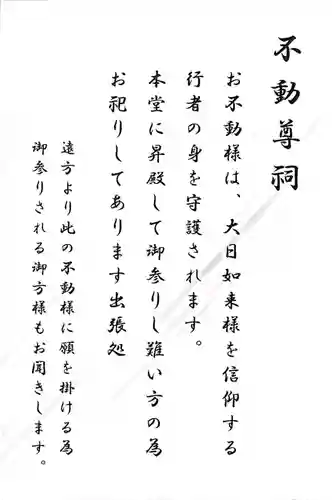 不動尊祠
お不動様は、大日如来様を信仰する
行者の身を守護されます。
本堂に昇殿して御参りし難い方の為
お祀りしてあります出張処
遠方より此の不動様に願を掛ける為
御参りされる御方様もお聞きします。